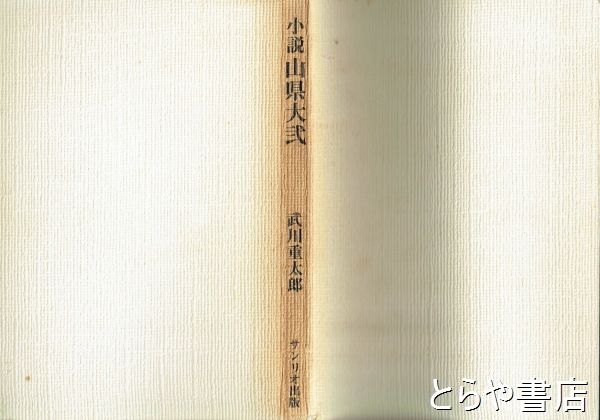 小説 山県大弐
武川重太郎
サンリオ出版
とらや書店